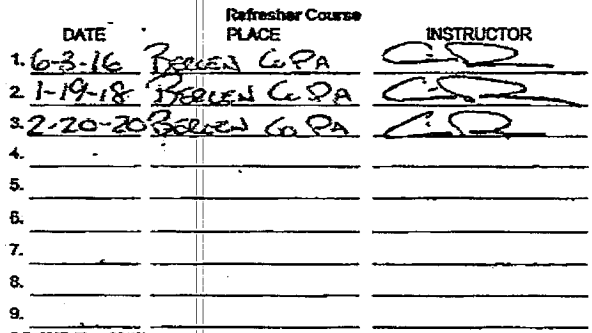 Refresher Course
DATE PLACE INSTRUCTOR
1. 6-3-16 BERGEN Co PA
2. 1-19-18 BERGEN Co PA
3. 2-20-20 BERGEN Co PA
4.
5.
6.
7.
8.
9.